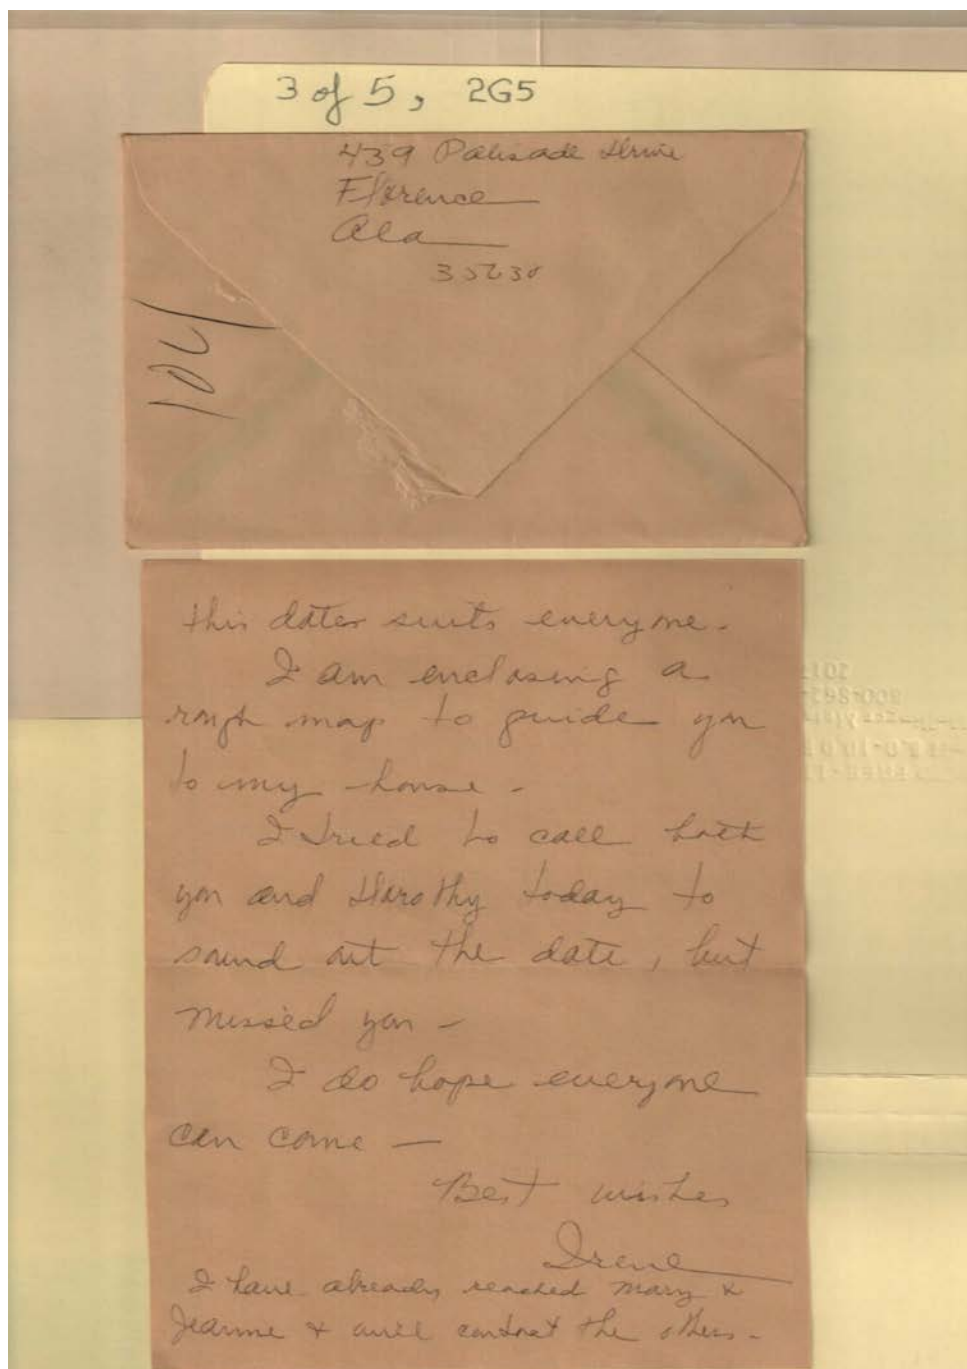 3 of 5, 2G5
439 Palisade Drive
Florence
Ala
35630
this dates suits everyone.
I am enclosing a
rough map to guide you
to my house -
I tried to call both
you and Dorothy today to
sound out the date, but
missed you -
I do hope everyone
can come —
Best wishes
Irene
I have already reached Mary &
Jeanne & will contact the others -